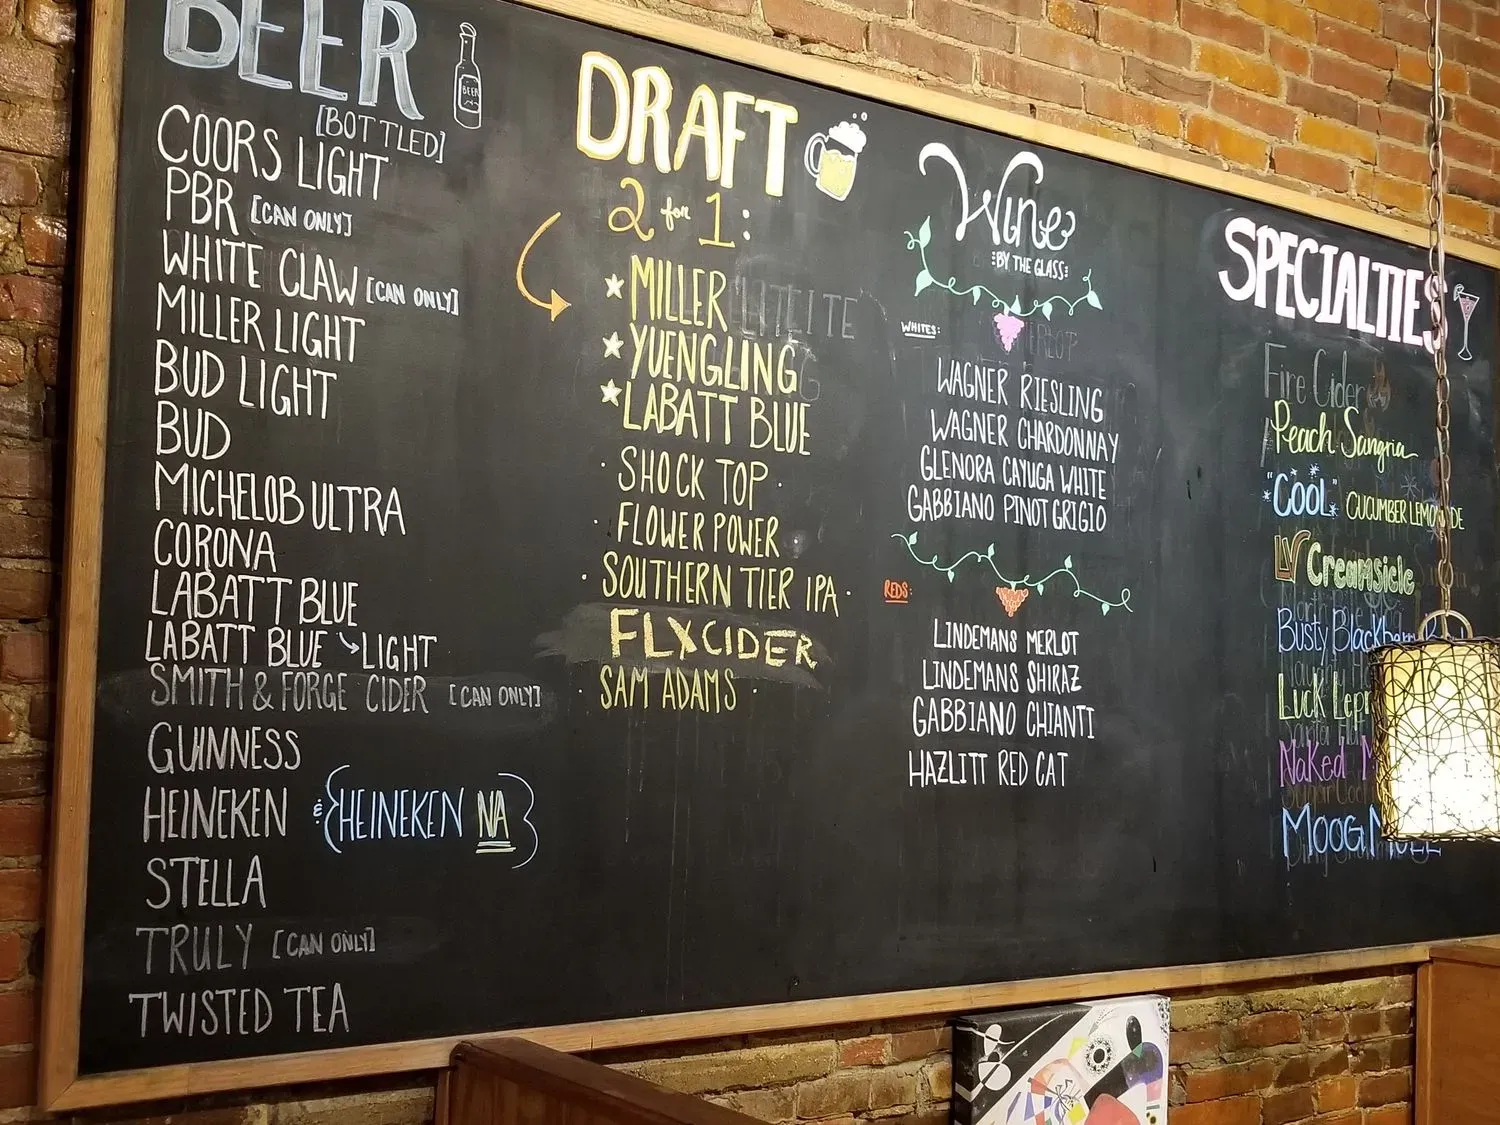 BEER
BEER
[BOTTLED]
COORS LIGHT
PBR [CAN ONLY]
WHITE CLAW [CAN ONLY]
MILLER LIGHT
BUD LIGHT
BUD
MICHELOB ULTRA
CORONA
LABATT BLUE
LABATT BLUE ↘ LIGHT
SMITH & FORGE CIDER [CAN ONLY]
GUINNESS
HEINEKEN & {HEINEKEN NA}
STELLA
TRULY [CAN ONLY]
TWISTED TEA
DRAFT
2 for 1:
★ MILLER LITE
★ YUENGLING
★ LABATT BLUE
· SHOCK TOP ·
· FLOWER POWER
· SOUTHERN TIER IPA ·
FLX CIDER
· SAM ADAMS ·
Wine
:BY THE GLASS:
WHITES:
WAGNER RIESLING
WAGNER CHARDONNAY
GLENORA CAYUGA WHITE
GABBIANO PINOT GRIGIO
REDS:
LINDEMANS MERLOT
LINDEMANS SHIRAZ
GABBIANO CHIANTI
HAZLITT RED CAT
SPECIALTIES
Fire Cider
Peach Sangria
"COOL" CUCUMBER LEMONADE
LV Creamsicle
Busty Blackberry
Luck
Naked
MOOG